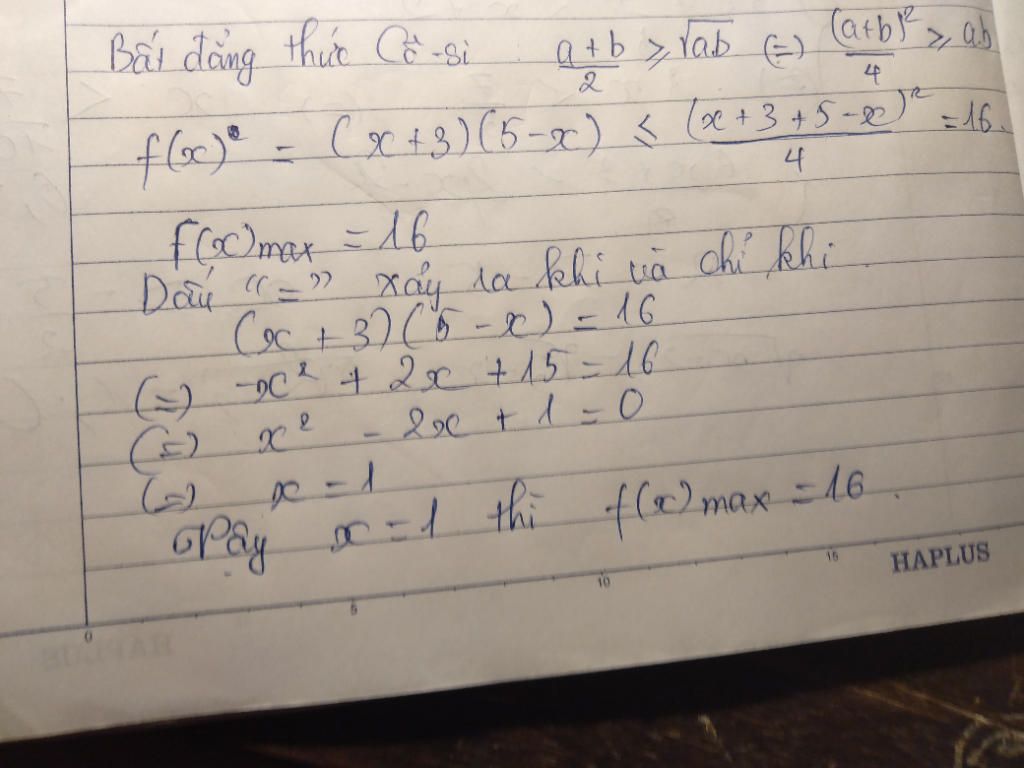 Bất đẳng thức Cô-si a+b/2 ≥ √ab (=) (a+b)²/4 ≥ ab
f(x) = (x+3)(5-x) ≤ (x+3+5-x)²/4 = 16.
f(x)max = 16
Dấu "=" xảy ra khi và chỉ khi
(x+3)(5-x) = 16
(=) -x² + 2x + 15 = 16
(=) x² - 2x + 1 = 0
(=) x = 1
Vậy x = 1 thì f(x)max = 16.
0 5 10 15 HAPLUS